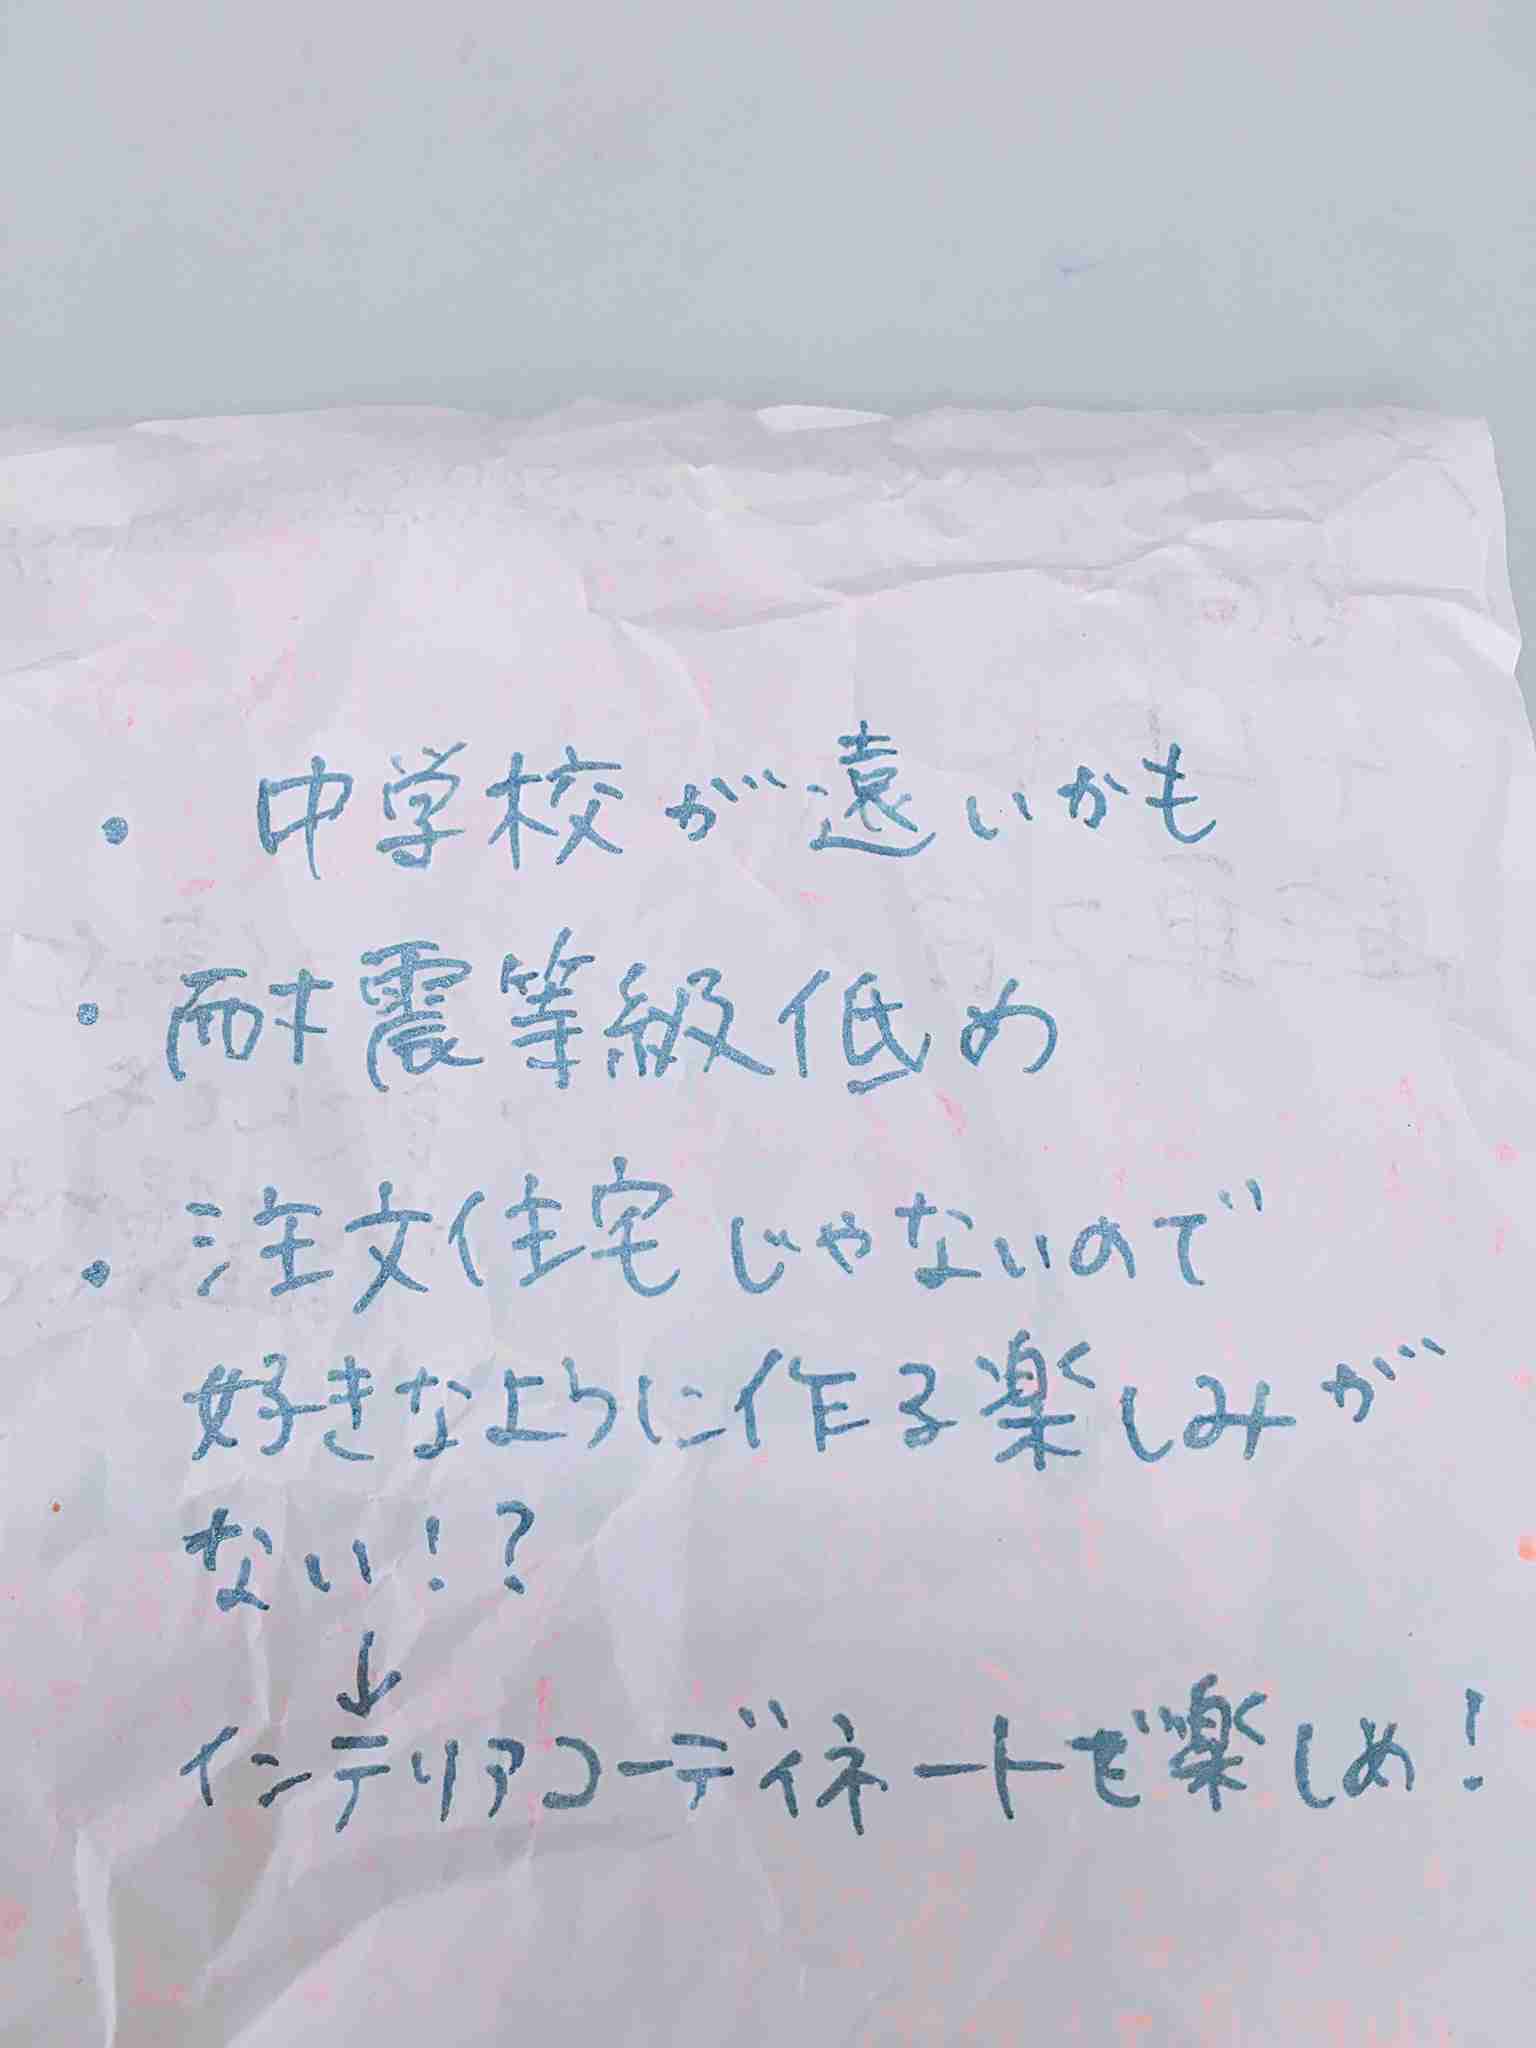 ・ 中学校が遠いかも
・耐震等級低め
・注文住宅じゃないので
好きなように作る楽しみが
ない!?
↓
インテリアコーディネートで楽しめ!